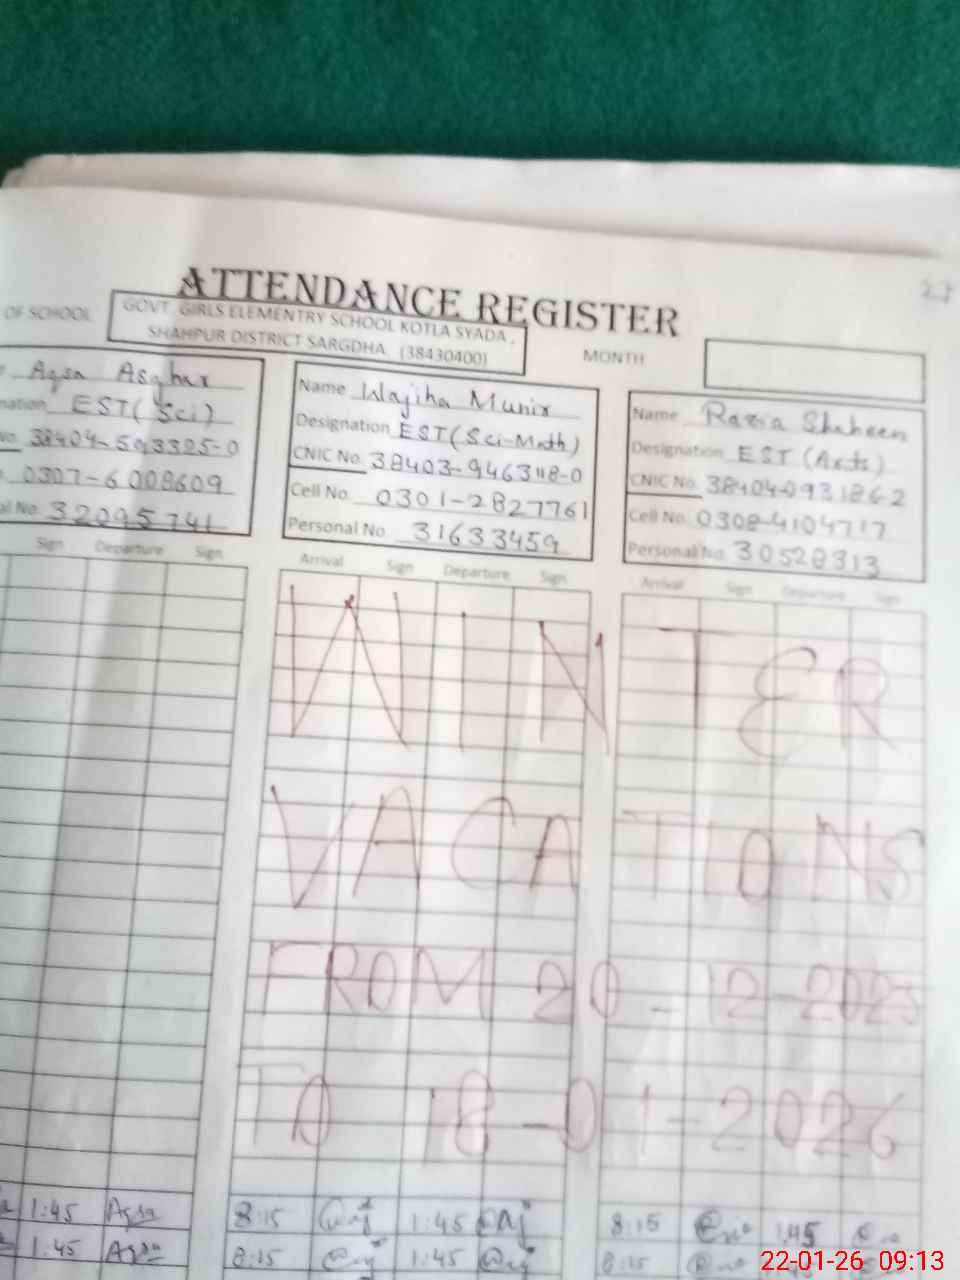 27
ATTENDANCE REGISTER
OF SCHOOL
GOVT. GIRLS ELEMENTRY SCHOOL KOTLA SYADA,
SHAHPUR DISTRICT SARGDHA. (38430400)
MONTH
Aqsa Asghar
EST (Sci)
38404-593325-0
0307-6008609
32095741
Sign Departure Sign
Name Wajiha Munir
Designation EST (Sci-Math)
CNIC No. 38403-946348-0
Cell No. 0301-2827761
Personal No. 31633459
Arrival Sign Departure Sign
Name Razia Shaheen
Designation EST (Arts)
CNIC No. 38404-0931862
Cell No. 0308-4104717
Personal No. 30528313
Arrival Sign Departure Sign
WINTER
VACATIONS
FROM 20-12-2025
TO 18-01-2026
1:45 Aqsa 8:15 1:45 8:15 1:45
1:45 Aqsa 8:15 1:45 8:15
22-01-26 09:13